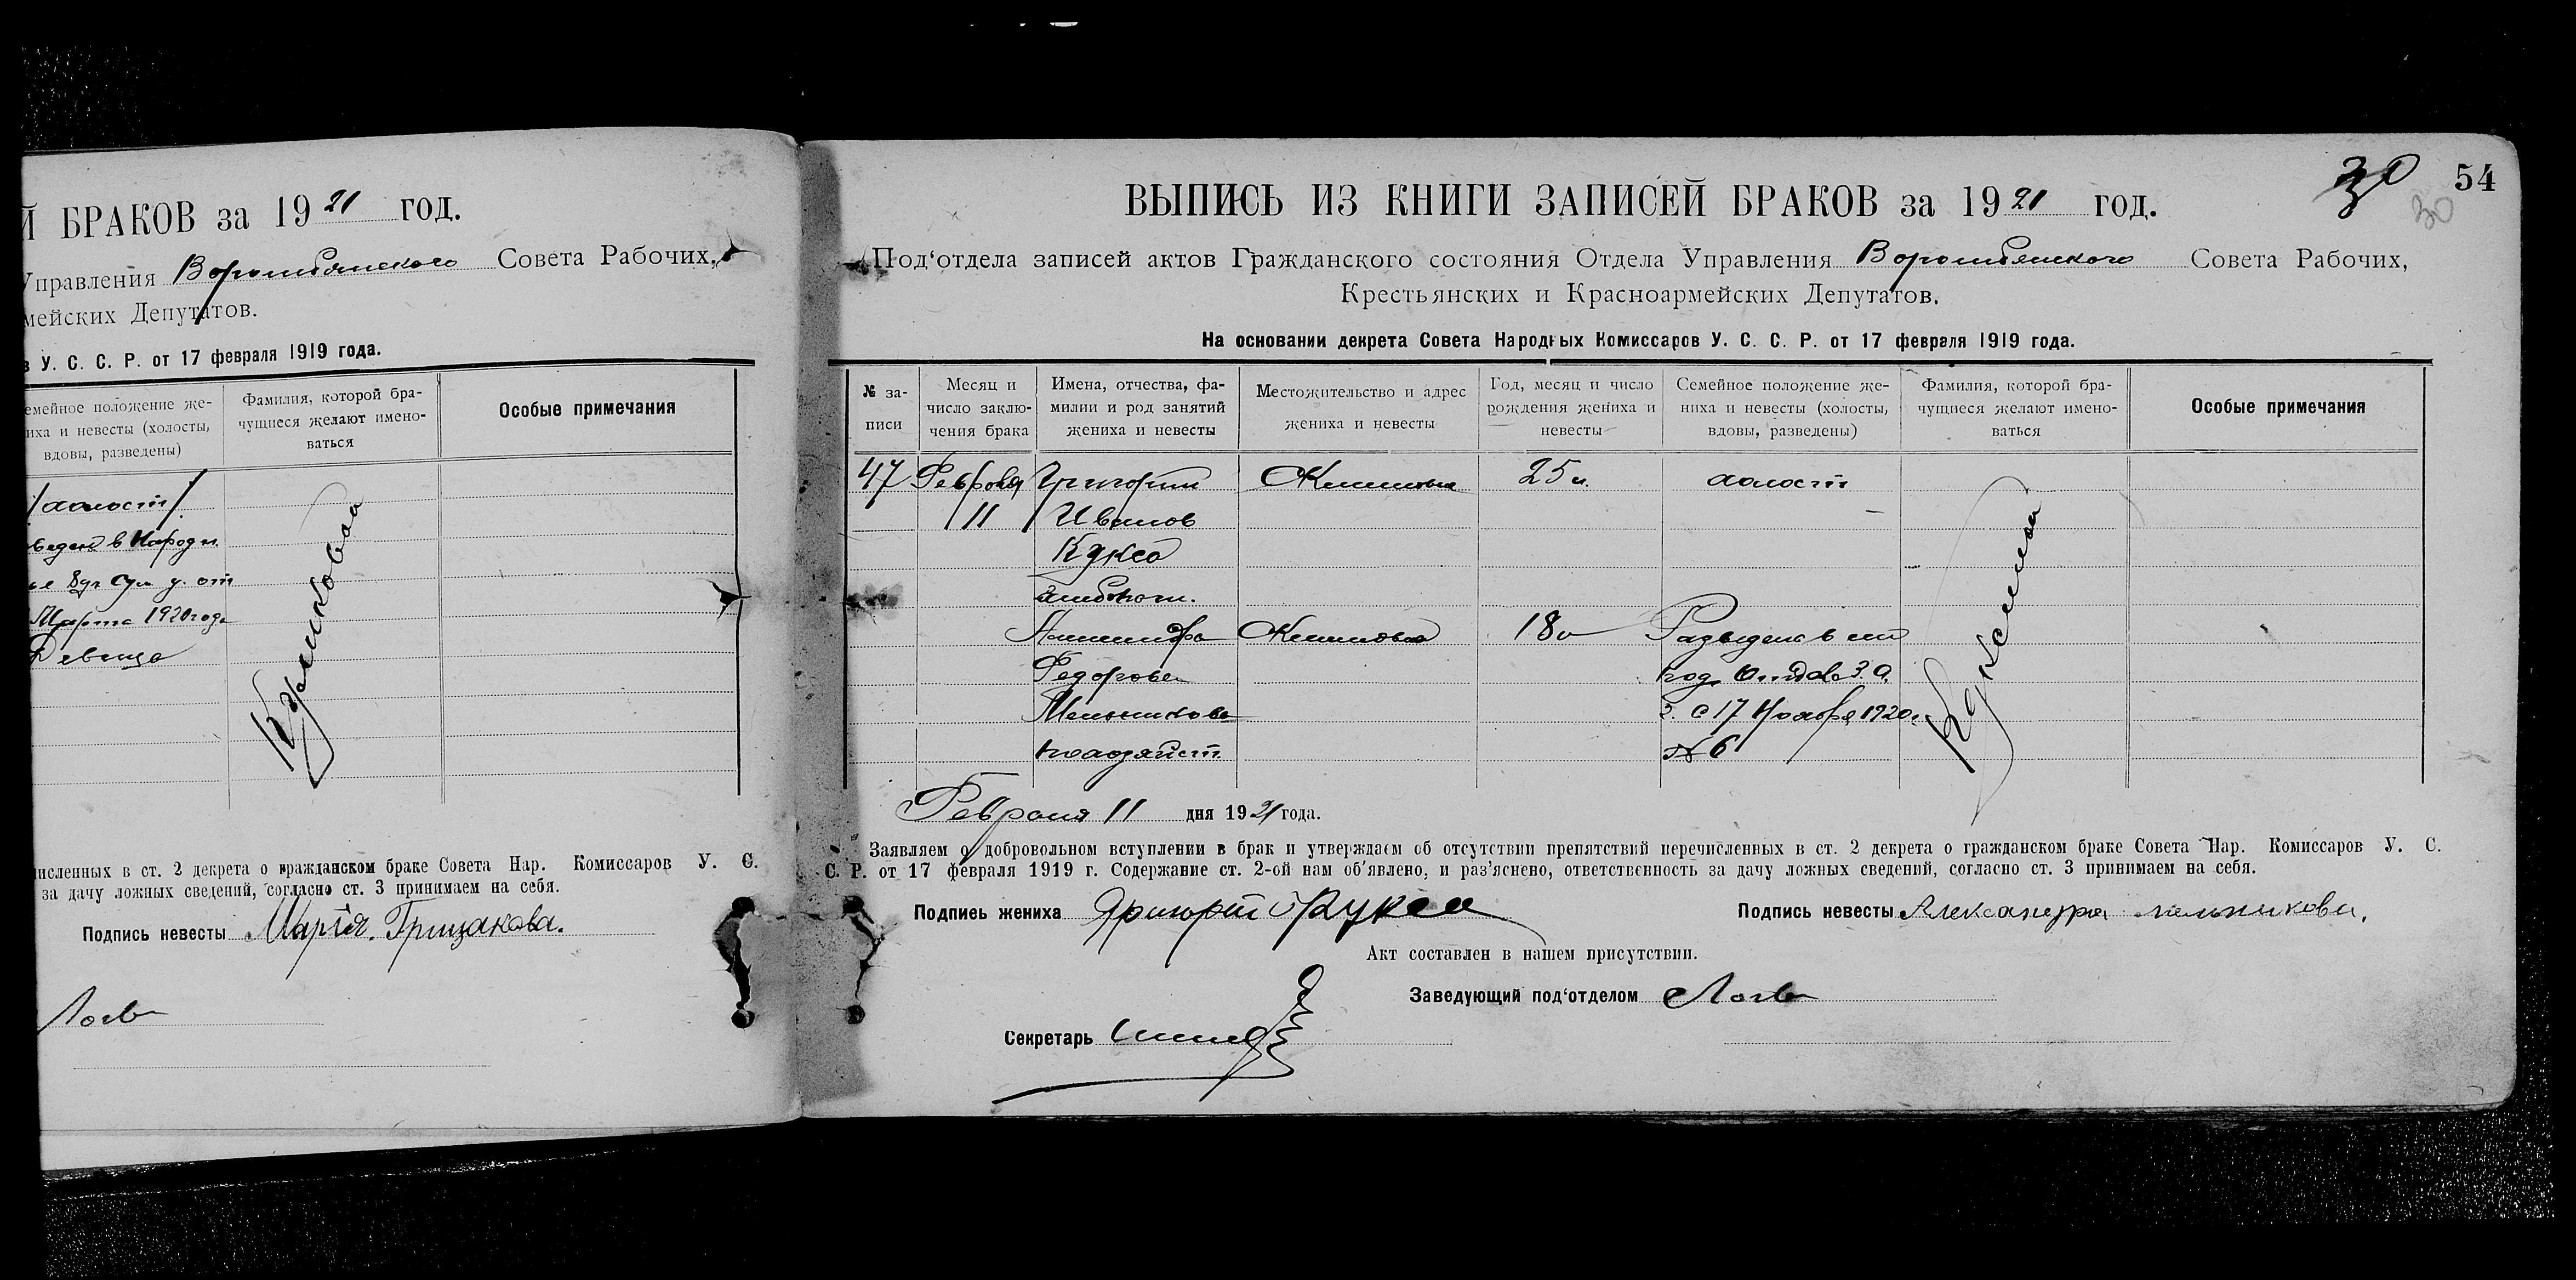 Й БРАКОВ за 1921 год.
Управления Ворожбянского Совета Рабочих,
мейских Депутатов.
в У. С. С. Р. от 17 февраля 1919 года.
емейное положение же-
ниха и невесты (холосты,
вдовы, разведены)
Фамилия, которой бра-
чущиеся желают имено-
ваться
Особые примечания
холост
Марта 1920 года
Девица
численных в ст. 2 декрета о гражданском браке Совета Нар. Комиссаров У. С.
за дачу ложных сведений, согласно ст. 3 принимаем на себя.
Подпись невесты Марія Грицакова.
30 54
30
ВЫПИСЬ ИЗ КНИГИ ЗАПИСЕЙ БРАКОВ за 1921 год.
Под‘отдела записей актов Гражданского состояния Отдела Управления Ворожбянского Совета Рабочих,
Крестьянских и Красноармейских Депутатов.
На основании декрета Совета Народных Комиссаров У. С. С. Р. от 17 февраля 1919 года.
№ за-
писи
Месяц и
число заклю-
чения брака
Имена, отчества, фа-
милии и род занятий
жениха и невесты
Местожительство и адрес
жениха и невесты
Год, месяц и число
рождения жениха и
невесты
Семейное положение же-
ниха и невесты (холосты,
вдовы, разведены)
Фамилия, которой бра-
чущиеся желают имено-
ваться
Особые примечания
47 Февраля Григорий 25 л. холост
11 Иванов
Кукса
Александра 18 л
Федоровна
Мельникова З. с 17 Ноября 1920 г.
№ 6
Февраля 11 дня 1921 года.
Заявляем о добровольном вступлении в брак и утверждаем об отсутствии препятствий перечисленных в ст. 2 декрета о гражданском браке Совета Нар. Комиссаров У. С.
С. Р. от 17 февраля 1919 г. Содержание ст. 2-ой нам об‘явлено, и раз‘яснено, ответственность за дачу ложных сведений, согласно ст. 3 принимаем на себя.
Подпись жениха Григорий Кукса Подпись невесты Александра мельникова,
Акт составлен в нашем присутствии.
Заведующий под‘отделом
Секретарь